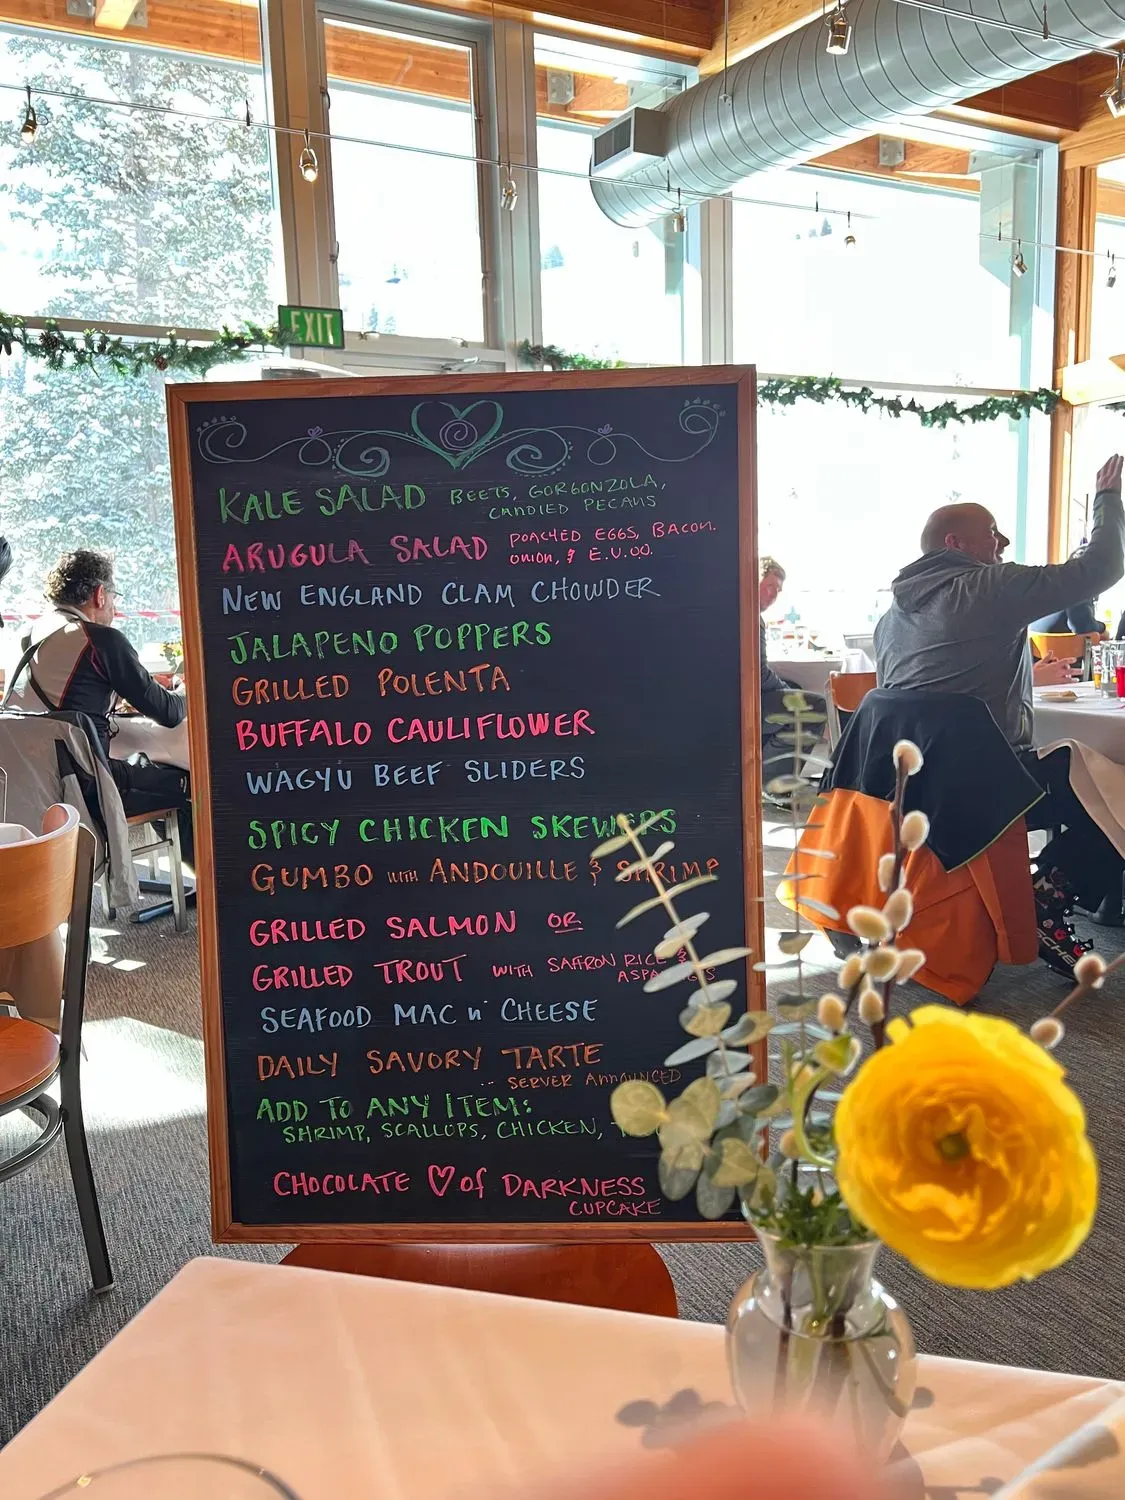 EXIT
KALE SALAD BEETS, GORGONZOLA,
CANDIED PECANS
ARUGULA SALAD POACHED EGGS, BACON.
ONION, & E.V.OO.
NEW ENGLAND CLAM CHOWDER
JALAPENO POPPERS
GRILLED POLENTA
BUFFALO CAULIFLOWER
WAGYU BEEF SLIDERS
SPICY CHICKEN SKEWERS
GUMBO WITH ANDOUILLE & SHRIMP
GRILLED SALMON OR
GRILLED TROUT WITH SAFFRON RICE &
ASPARAGUS
SEAFOOD MAC n' CHEESE
DAILY SAVORY TARTE
.. SERVER ANNOUNCED
ADD TO ANY ITEM:
SHRIMP, SCALLOPS, CHICKEN,
CHOCOLATE ♡ of DARKNESS
CUPCAKE